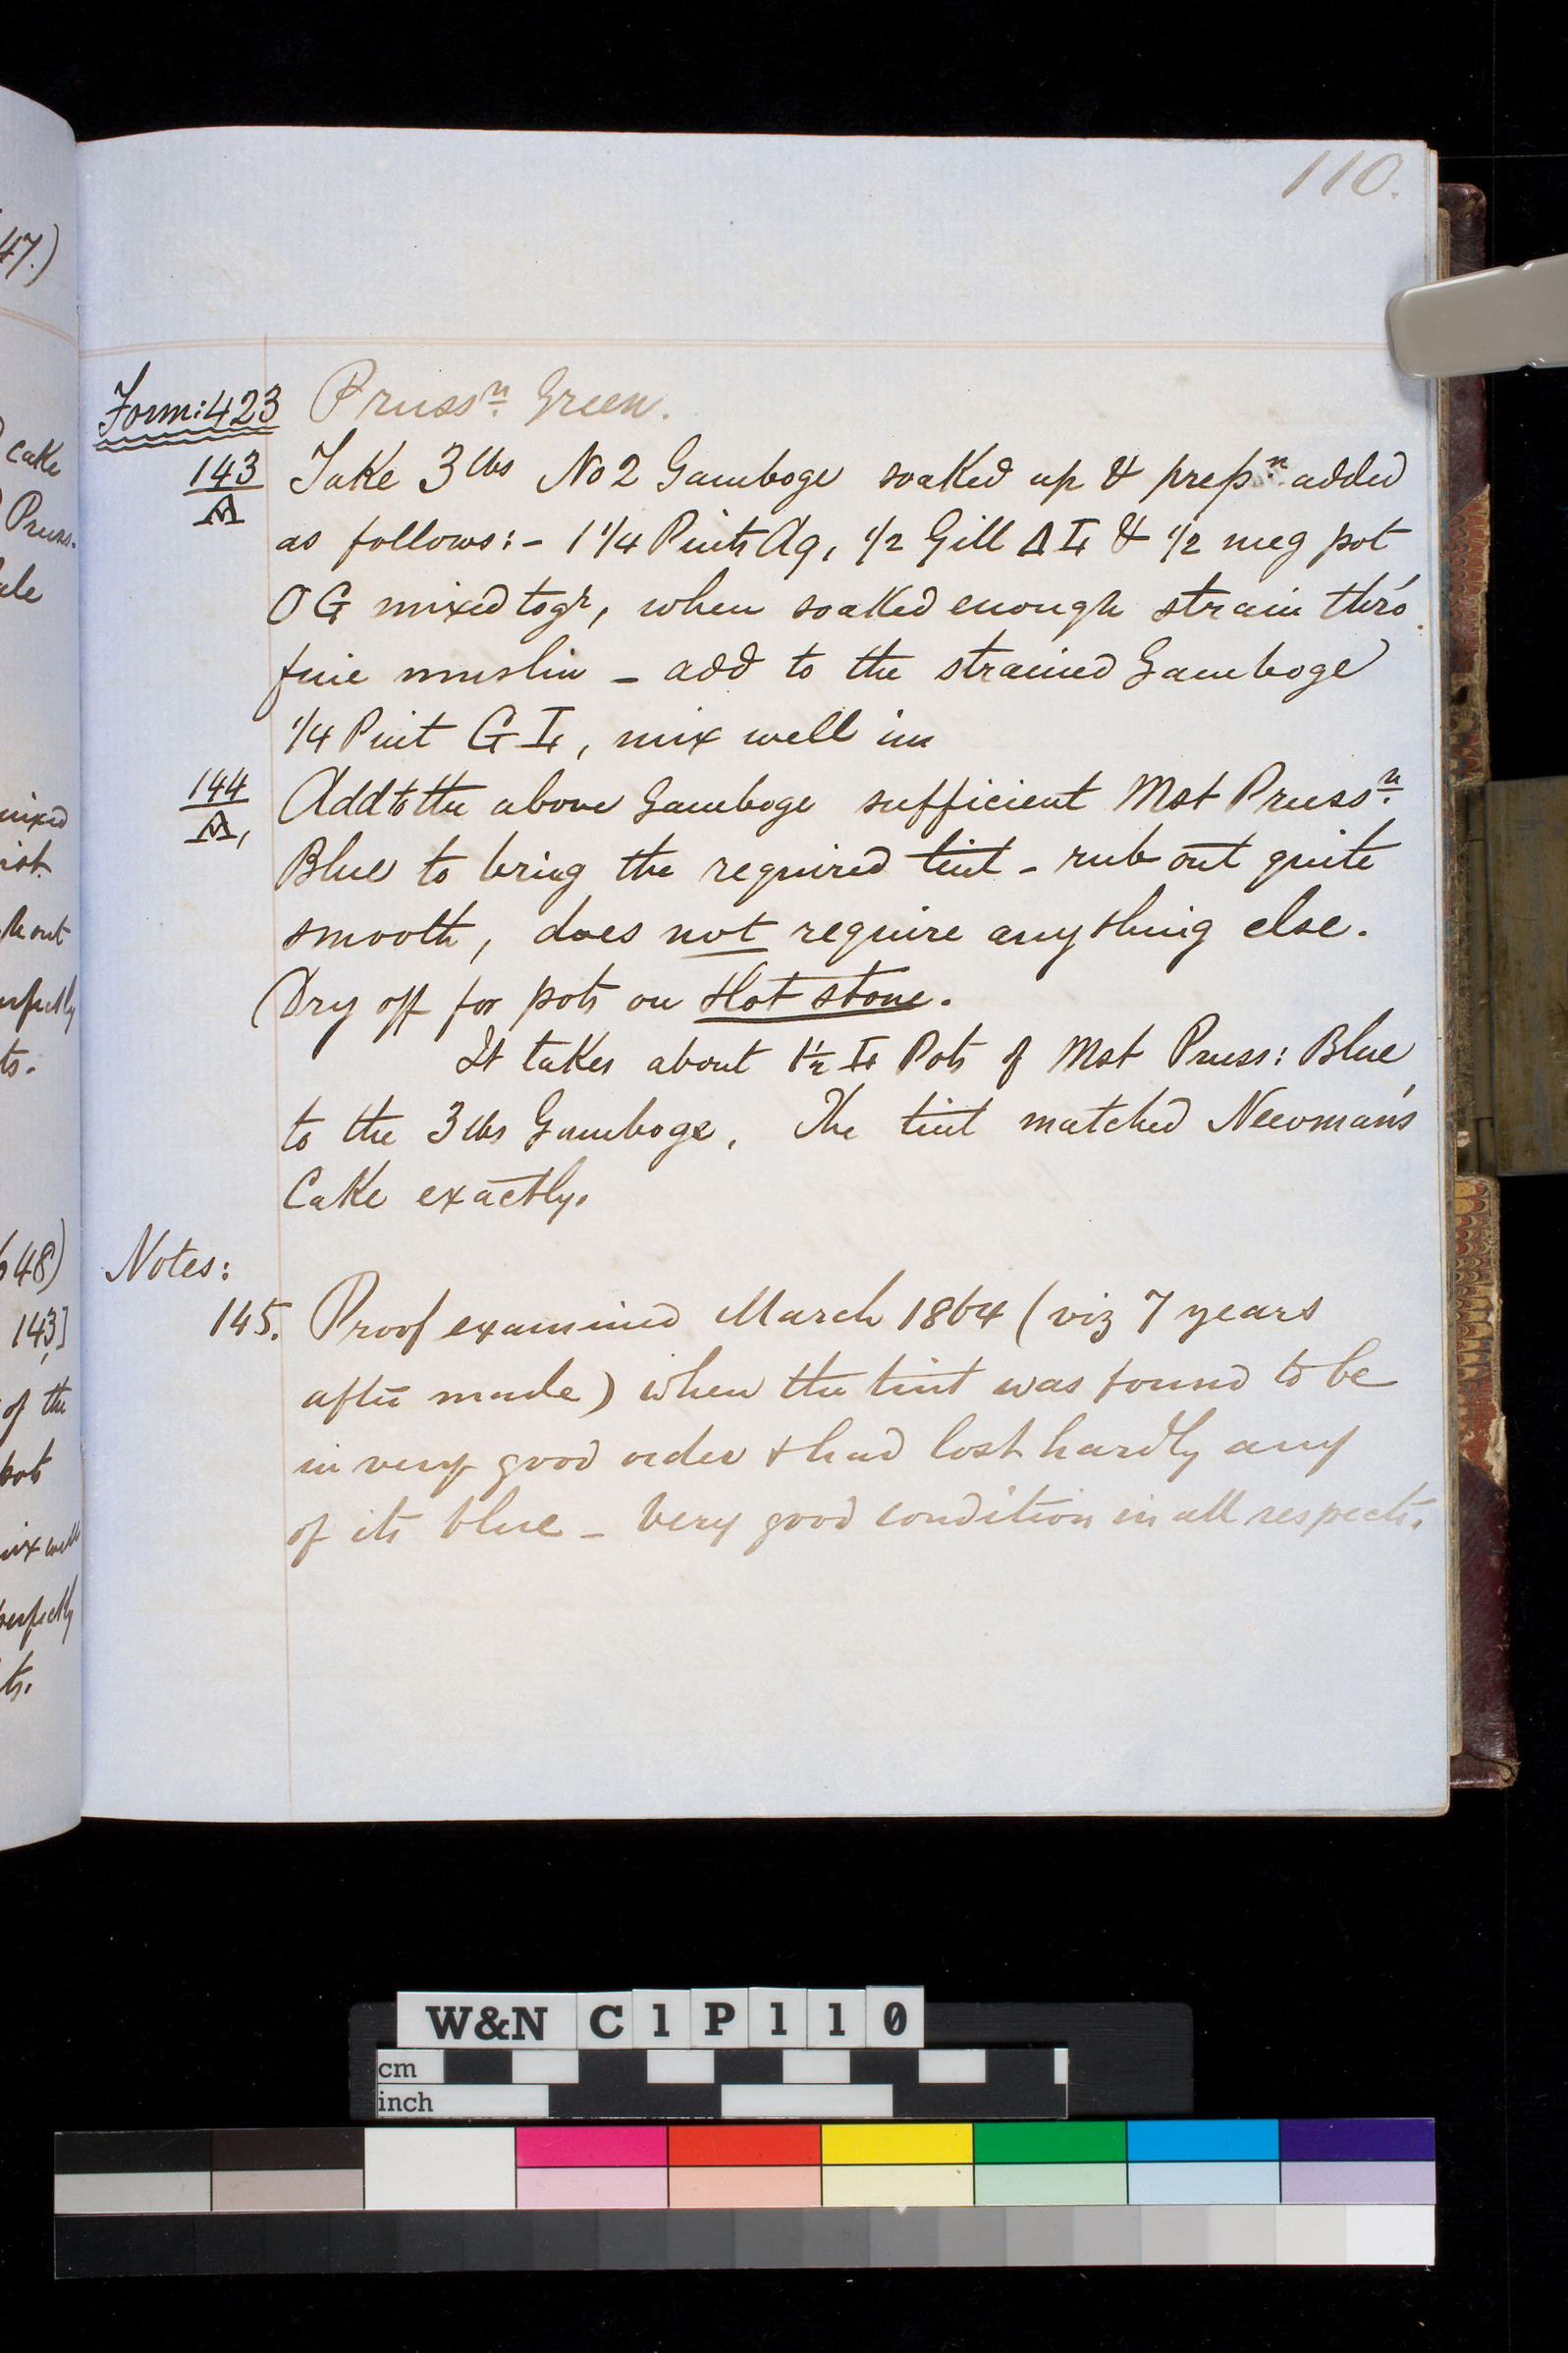 47.)
cake
Pruss.
ale
mixed
out
perfectly
ts.
48)
143]
of the
pots
mix well
perfectly
ts.
110.
Form: 423 Prussn. Green.
143 Take 3 lbs No 2 Gamboge soaked up & prepn added
as follows:- 1 1/4 Pints Aq, 1/2 Gill Δ & 1/2 meg pot
OG mixed togr, when soaked enough strain thro'
fine muslin - add to the strained Gamboge
1/4 Pint G, mix well in
144 Add to the above Gamboge sufficient Mst Prussn.
Blue to bring the required tint - rub out quite
smooth, does not require anything else.
(Dry off for pots on Hot stone.
It takes about 1 1/2 Pots of Mst Pruss: Blue
to the 3 lbs Gamboge. The tint matched Newman's
Cake exactly.
Notes:
145. Proof examined March 1864 (viz 7 years
after made) when the tint was found to be
in very good order & had lost hardly any
of its blue - Very good condition in all respects.
W&N C1P110
cm
inch